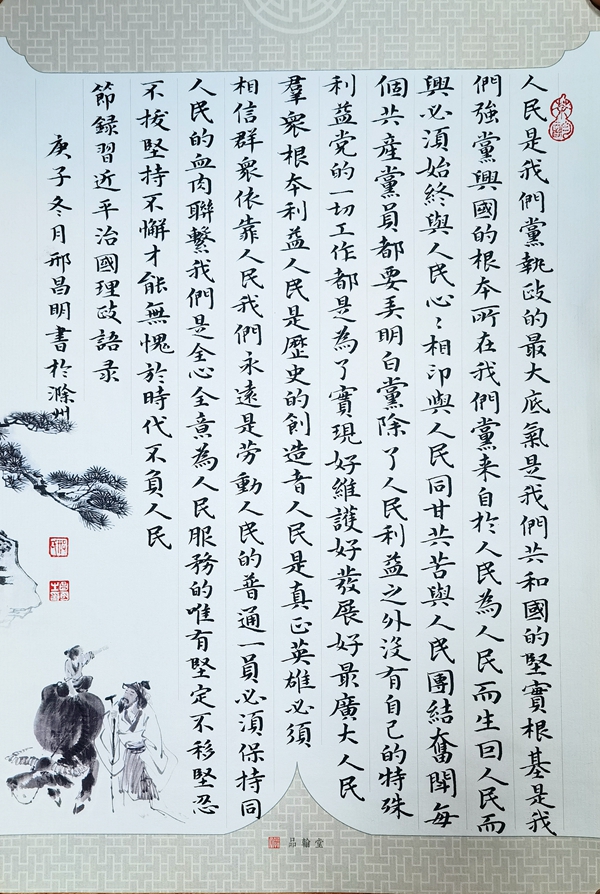 人民是我們黨執政的最大底氣是我們共和國的堅實根基是我
們強黨興國的根本所在我們黨来自於人民為人民而生因人民而
興必須始終與人民心心相印與人民同甘共苦與人民團結奮鬪每
個共產黨員都要弄明白黨除了人民利益之外没有自己的特殊
利益党的一切工作都是為了實現好維護好發展好最廣大人民
羣衆根本利益人民是歷史的創造者人民是真正英雄必須
相信群衆依靠人民我們永遠是劳動人民的普通一員必須保持同
人民的血肉聯繫我們是全心全意為人民服務的唯有堅定不移堅忍
不拔堅持不懈才能無愧於時代不負人民
節録習近平治國理政語录
庚子冬月邢昌明書於滁州
品翰堂